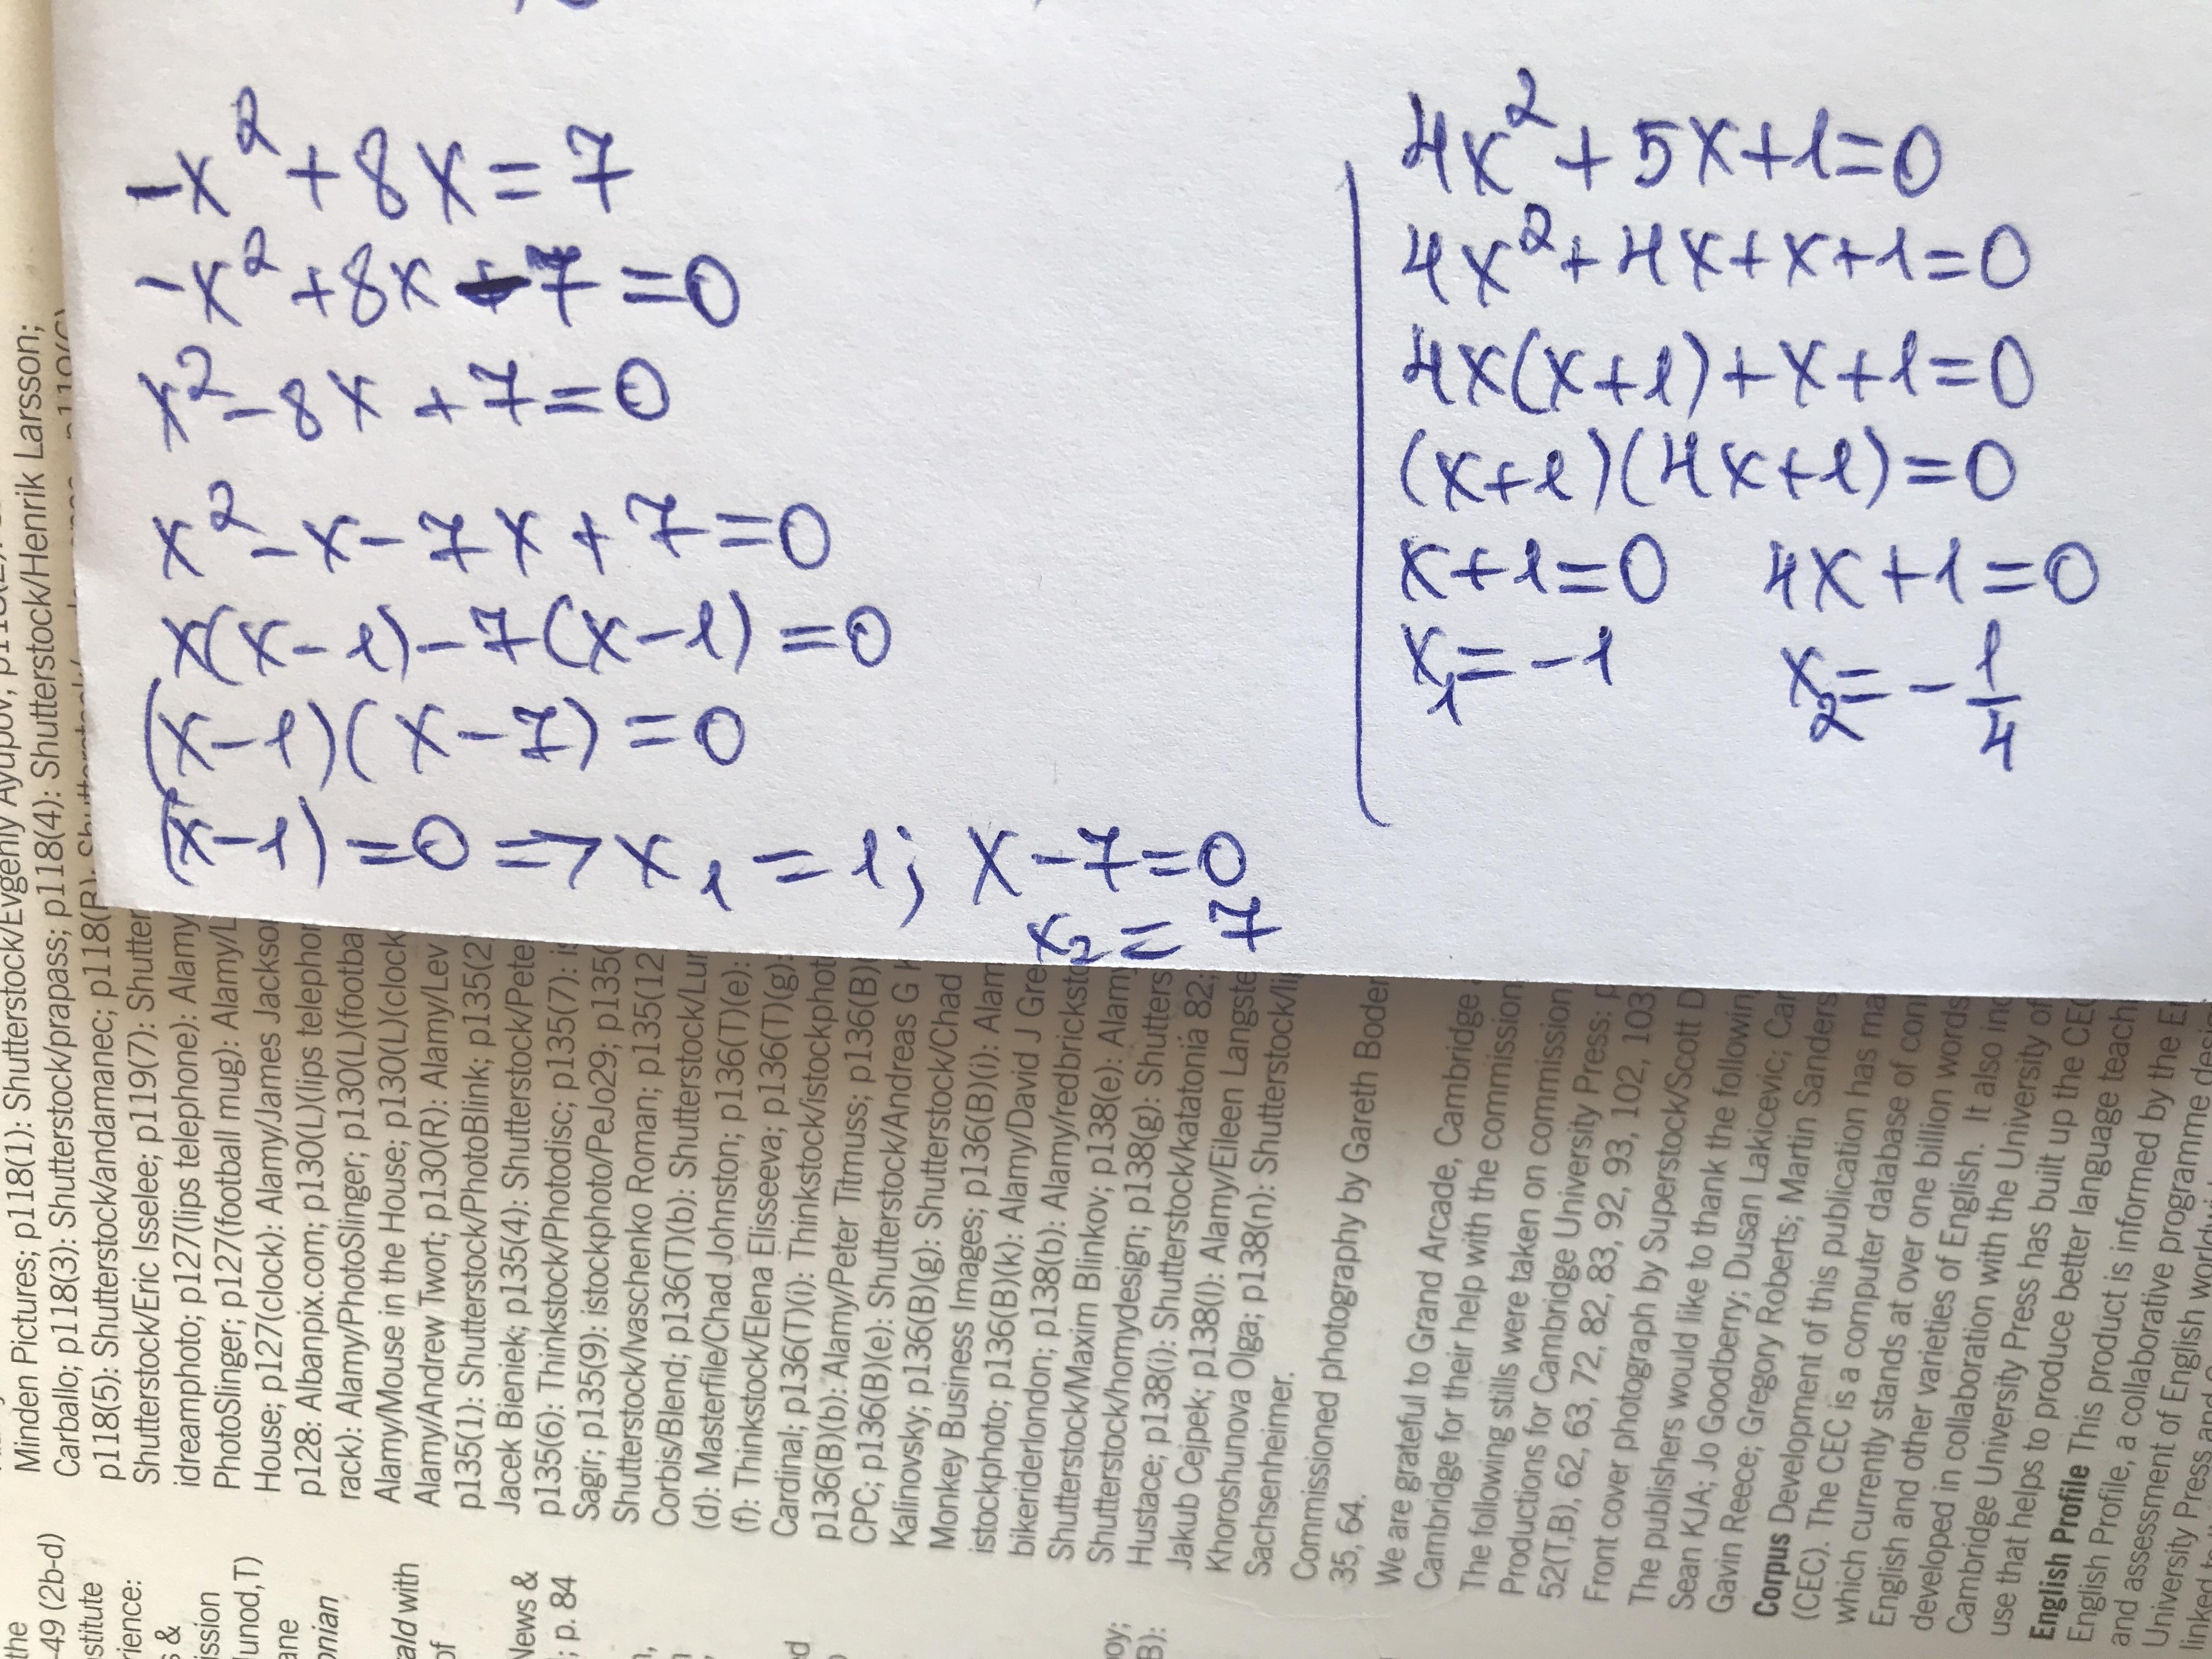 -x² + 8x = 7
-x² + 8x - 7 = 0
x² - 8x + 7 = 0
x² - x - 7x + 7 = 0
x(x-1) - 7(x-1) = 0
(x-1)(x-7) = 0
(x-1) = 0 => x₁ = 1; x-7=0
x₂ = 7
4x² + 5x + 1 = 0
4x² + 4x + x + 1 = 0
4x(x+1) + x + 1 = 0
(x+1)(4x+1) = 0
x+1=0 4x+1=0
x₁ = -1 x₂ = -1/4
the
-49 (2b-d)
stitute
rience:
s &
ission
unod,T)
ane
onian
ald with
of
News &
; p. 84
Minden Pictures; p118(1): Shutterstock/Evgeniy Ayupov;
Carballo; p118(3): Shutterstock/prapass; p118(4): Shutterstock/Henrik Larsson;
p118(5): Shutterstock/andamanec; p118(R):
Shutterstock/Eric Isselee; p119(7): Shutter
idreamphoto; p127(lips telephone): Alamy
PhotoSlinger; p127(football mug): Alamy/L
House; p127(clock): Alamy/James Jackso
p128: Albanpix.com; p130(L)(lips telephor
rack): Alamy/PhotoSlinger; p130(L)(footba
Alamy/Mouse in the House; p130(L)(clock
Alamy/Andrew Twort; p130(R): Alamy/Lev
p135(1): Shutterstock/PhotoBlink; p135(2
Jacek Bieniek; p135(4): Shutterstock/Pete
p135(6): Thinkstock/Photodisc; p135(7): is
Sagir; p135(9): istockphoto/PeJo29; p135(
Shutterstock/Ivaschenko Roman; p135(12
Corbis/Blend; p136(T)(b): Shutterstock/Lur
(d): Masterfile/Chad Johnston; p136(T)(e):
(f): Thinkstock/Elena Elisseeva; p136(T)(g):
Cardinal; p136(T)(i): Thinkstock/istockphot
p136(B)(b): Alamy/Peter Titmuss; p136(B)
CPC; p136(B)(e): Shutterstock/Andreas G K
Kalinovsky; p136(B)(g): Shutterstock/Chad
Monkey Business Images; p136(B)(i): Alam
istockphoto; p136(B)(k): Alamy/David J Gre
bikeriderlondon; p138(b): Alamy/redbricksto
Shutterstock/Maxim Blinkov; p138(e): Alamy
Shutterstock/homydesign; p138(g): Shutters
Hustace; p138(i): Shutterstock/katatonia 82;
Jakub Cejpek; p138(l): Alamy/Eileen Langste
Khoroshunova Olga; p138(n): Shutterstock/li
Sachsenheimer.
Commissioned photography by Gareth Boden
35, 64.
We are grateful to Grand Arcade, Cambridge
Cambridge for their help with the commission
The following stills were taken on commission
Productions for Cambridge University Press: p
52(T,B), 62, 63, 72, 82, 83, 92, 93, 102, 103
Front cover photograph by Superstock/Scott D
The publishers would like to thank the followin
Sean KJA; Jo Goodberry; Dusan Lakicevic; Car
Gavin Reece; Gregory Roberts; Martin Sanders
Corpus Development of this publication has ma
(CEC). The CEC is a computer database of con
which currently stands at over one billion words
English and other varieties of English. It also inc
developed in collaboration with the University of
Cambridge University Press has built up the CEC
use that helps to produce better language teach
English Profile This product is informed by the E
English Profile, a collaborative programme des
and assessment of English worldwi
University Press and